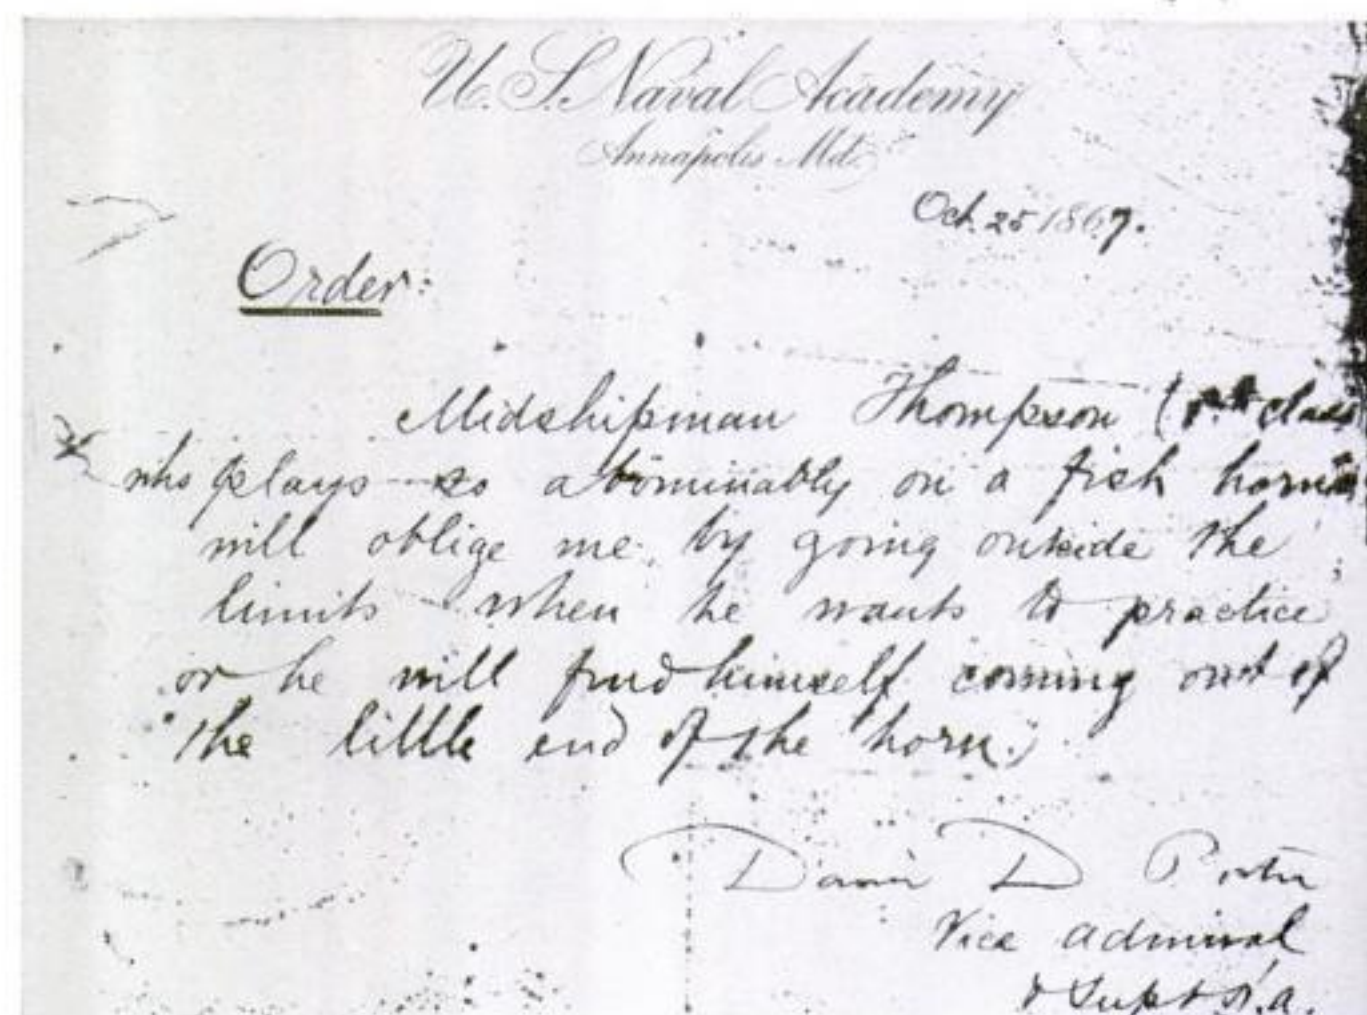 U. S. Naval Academy
Annapolis Md.
Oct. 25 1867.
Order:
Midshipman Thompson ( class
who plays so abominably on a fish horn
will oblige me by going outside the
limits when he wants to practice
or he will find himself coming out of
the little end of the horn.
David D Porter
Vice Admiral
& Supt N.A.